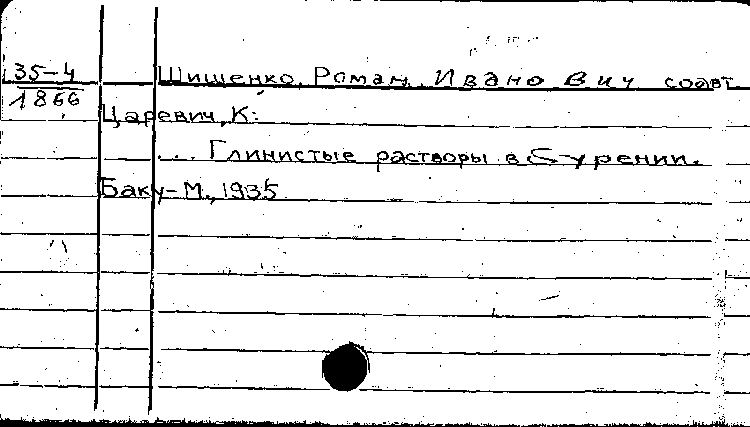 35-4
1866
Шишенко, Роман Иванович соавт.
Царевич, К:
... Глинистые растворы в бурении.
Баку-М., 1935